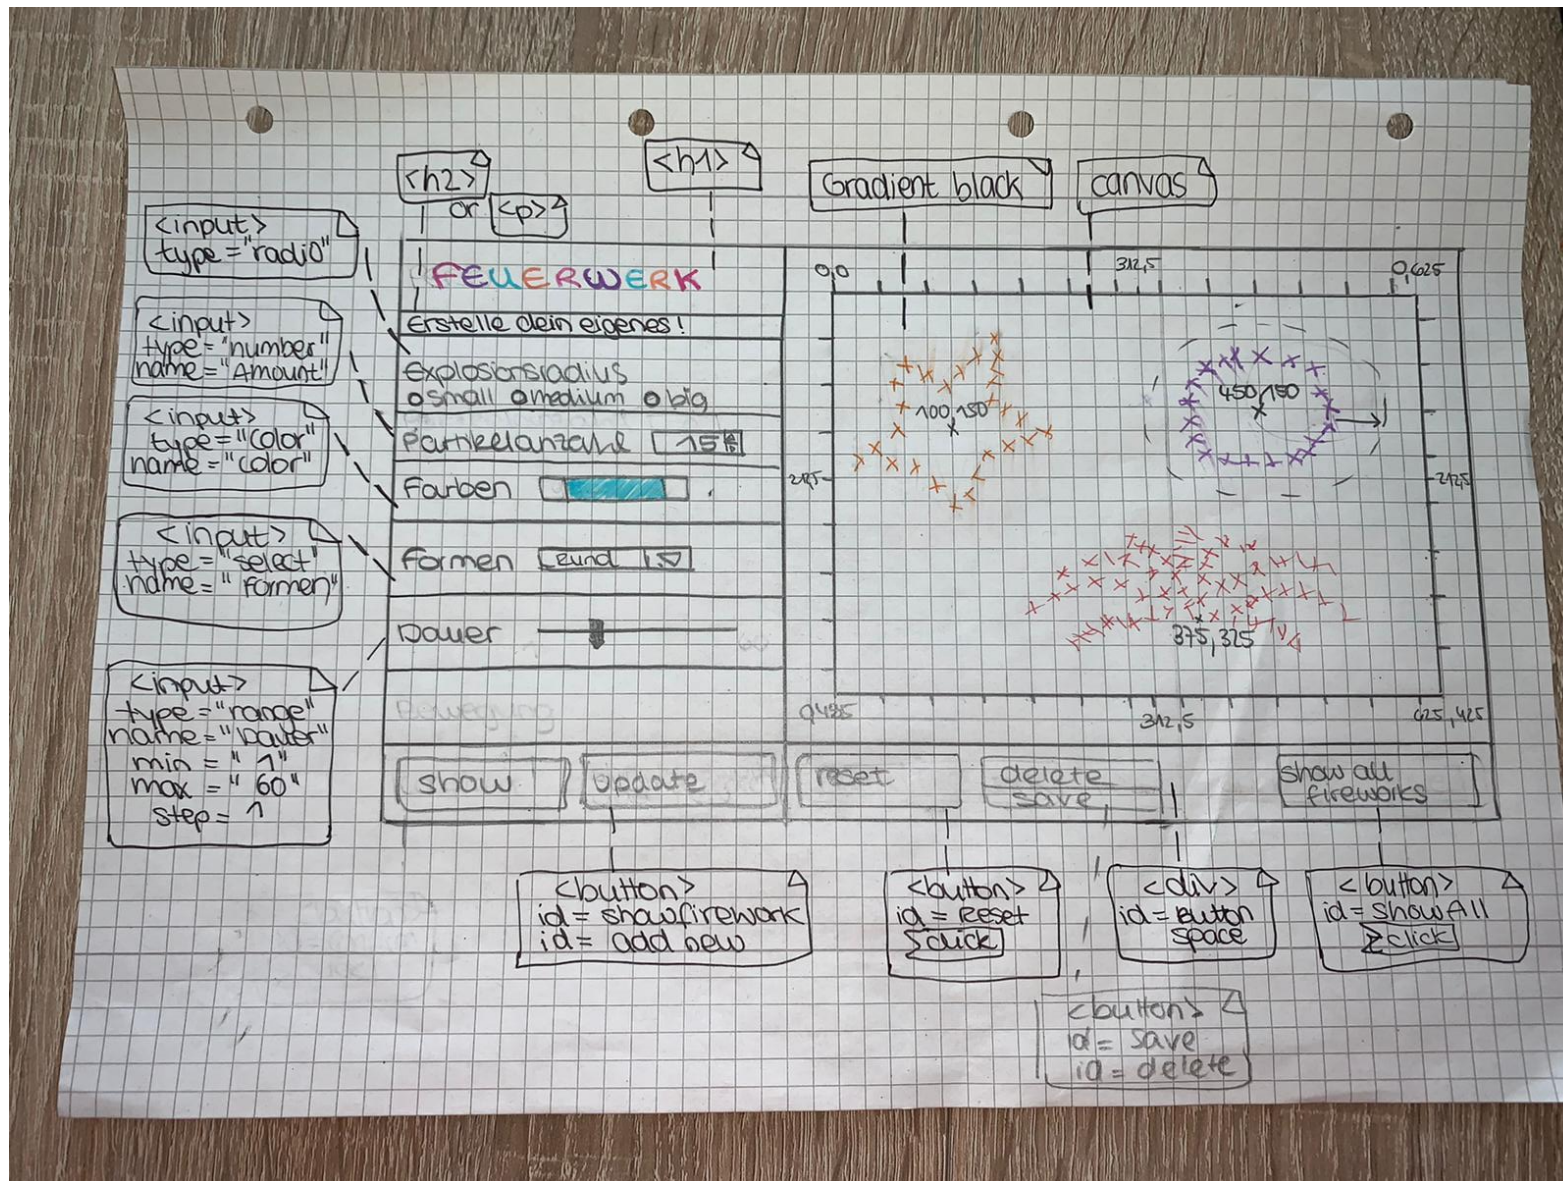 <h2>
or <p>
<h1>
Gradient black
canvas
<input>
type="radio"
<input>
type="number"
name="Amount"
<input>
type="color"
name="color"
<input>
type="select"
name="formen"
<input>
type="range"
name="Dauer"
min="1"
max="60"
step=1
FEUERWERK
Erstelle dein eigenes!
Explosionsradius
small medium big
Partikelanzahl 15
Farben
Formen Rund
Dauer
Bewegung
show
update
reset
delete
save
show all
fireworks
0,0
312,5
0,625
100,150
450,150
212,5
212,5
375,325
0,425
312,5
625,425
<button>
id=showfirework
id=add new
<button>
id=Reset
click
<div>
id=Button
space
<button>
id=showAll
click
<button>
id=save
id=delete